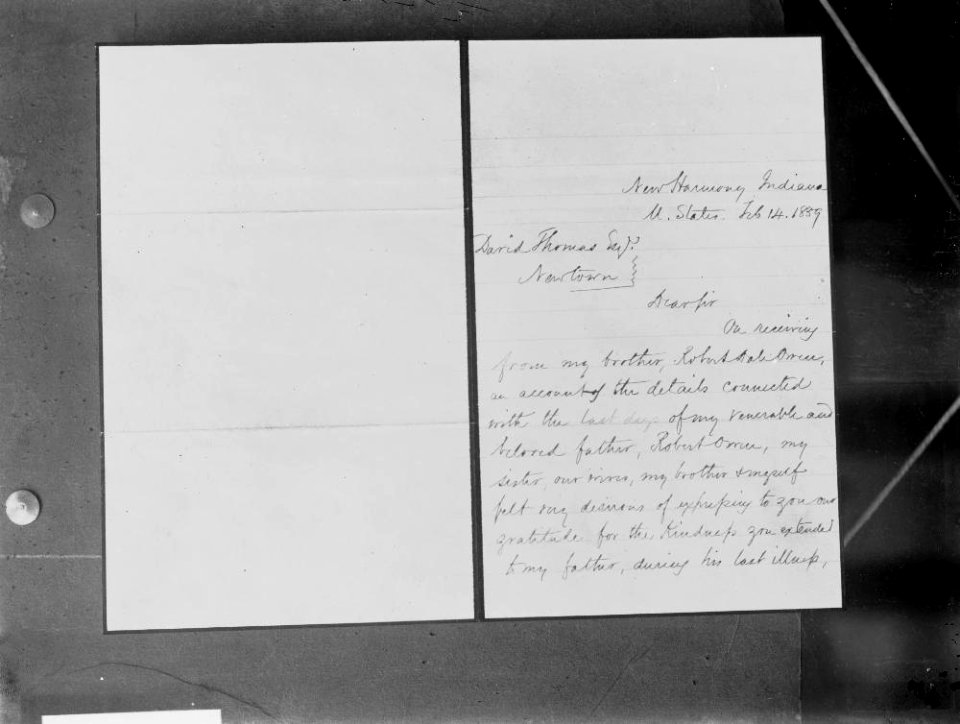 New Harmony Indiana
U. States. Feb 14. 1859
David Thomas Esqr.
Newtown
Dear Sir
On receiving
from my brother, Robert Dale Owen,
an account of the details connected
with the last days of my venerable and
beloved father, Robert Owen, my
sister, our wives, my brother & myself
felt very desirous of expressing to you our
gratitude for the kindness you extended
to my father, during his last illness,